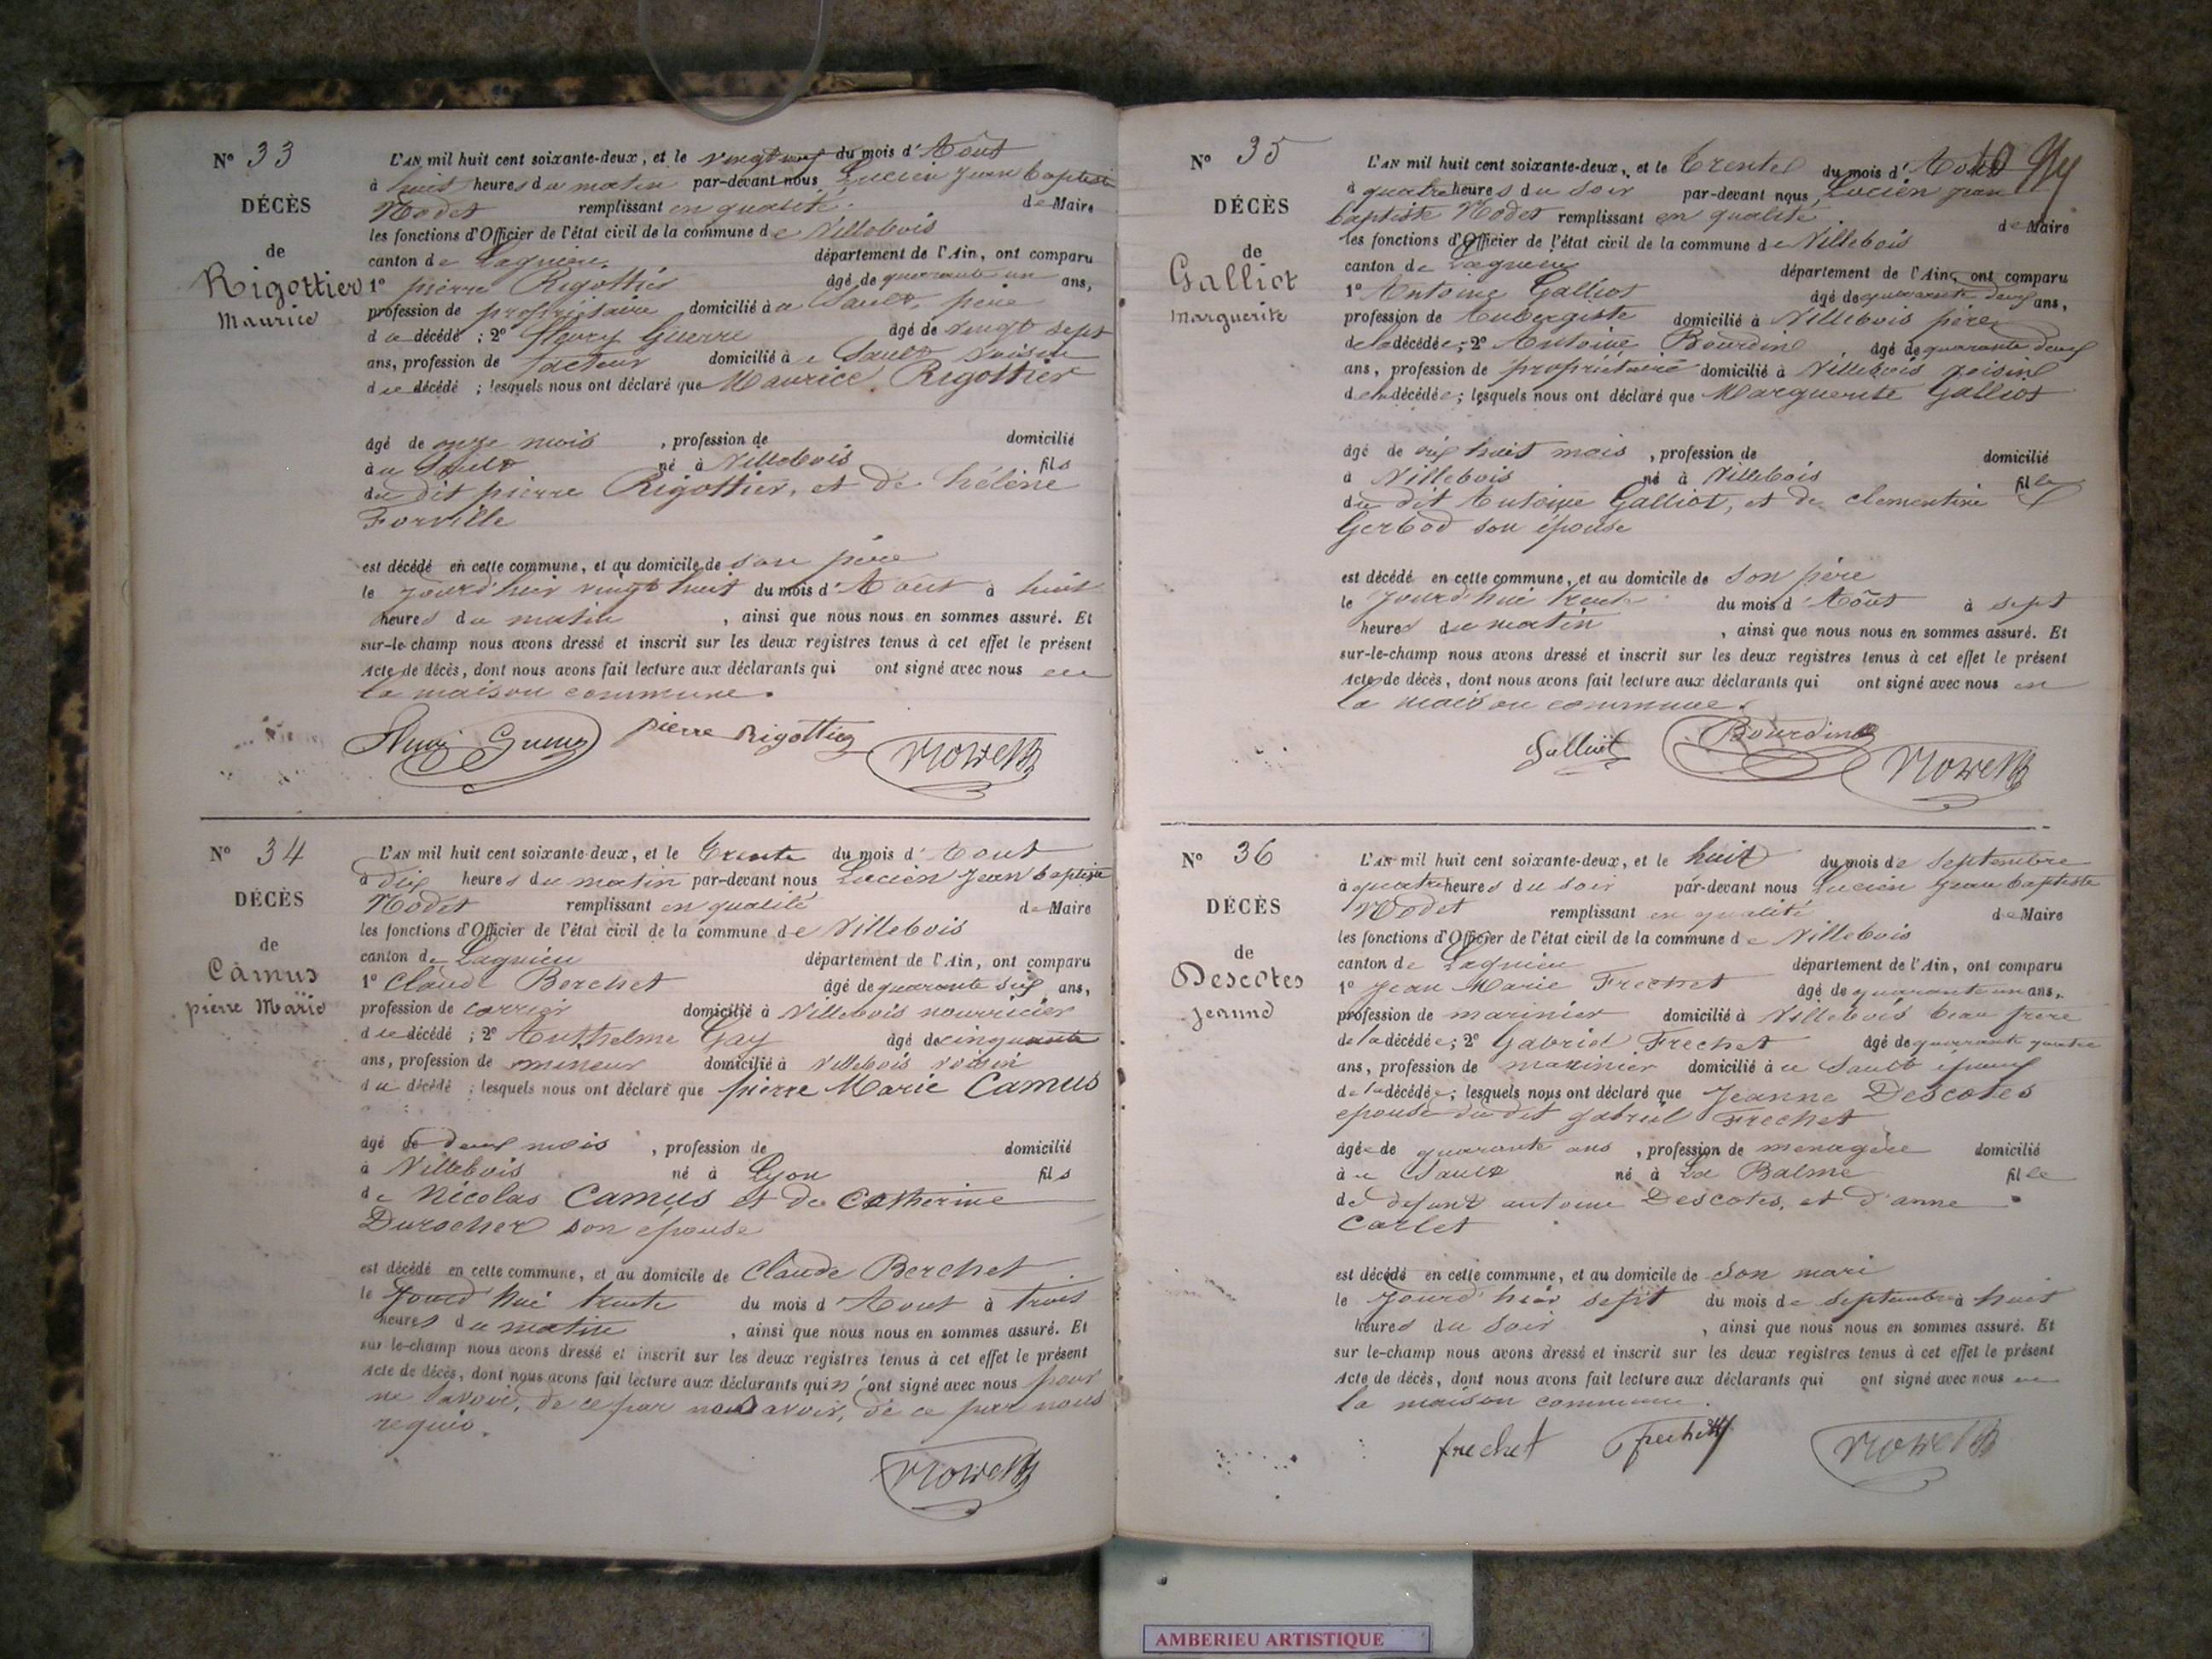 N° 33
DÉCÈS
de
Rigottier
Maurice
L'AN mil huit cent soixante-deux, et le vingt neuf du mois d'Août
à huit heures du matin par-devant nous Lucien Jean baptiste
Nodet remplissant en qualité de Maire
les fonctions d'Officier de l'état civil de la commune de Villebois
canton de Lagnieu département de l'Ain, ont comparu
1° pierre Rigottier âgé de quarante un ans,
profession de propriétaire domicilié à au Sault, père
du décédé ; 2° fleury Guerre âgé de vingt sept
ans, profession de facteur domicilié à au Sault voisin
du décédé ; lesquels nous ont déclaré que Maurice Rigottier
âgé de onze mois , profession de domicilié
à au Sault né à Villebois fils
du dit pierre Rigottier, et de hélène
Forville
est décédé en cette commune, et au domicile de son père
le jourd'hier vingt huit du mois d'Aout à huit
heures du matin , ainsi que nous nous en sommes assuré. Et
sur-le-champ nous avons dressé et inscrit sur les deux registres tenus à cet effet le présent
Acte de décès, dont nous avons fait lecture aux déclarants qui ont signé avec nous en
la maison commune.
pierre Rigottier
N° 34
DÉCÈS
de
Camus
pierre Marie
L'AN mil huit cent soixante-deux, et le trente du mois d'Aout
à dix heures du matin par-devant nous Lucien Jean baptiste
Nodet remplissant en qualité de Maire
les fonctions d'Officier de l'état civil de la commune de Villebois
canton de Lagnieu département de l'Ain, ont comparu
1° Claude Berchet âgé de quarante six ans,
profession de carrier domicilié à Villebois nourricier
du décédé ; 2° Anthelme Gay âgé de cinquante
ans, profession de mineur domicilié à Villebois voisin
du décédé ; lesquels nous ont déclaré que pierre Marie Camus
âgé de deux mois , profession de domicilié
à Villebois né à Lyon fils
de Nicolas Camus et de Catherine
Durocher son epouse
est décédé en cette commune, et au domicile de Claude Berchet
le Jourd'hui trente du mois d'Aout à trois
heures du matin , ainsi que nous nous en sommes assuré. Et
sur-le-champ nous avons dressé et inscrit sur les deux registres tenus à cet effet le présent
Acte de décès, dont nous avons fait lecture aux déclarants qui n'ont signé avec nous pour
ne savoir, de ce par nous avoir, de ce par nous
requis.
N° 35
DÉCÈS
de
Galliot
Marguerite
L'AN mil huit cent soixante-deux, et le trente du mois d'Août
à quatre heures du soir par-devant nous, Lucien jean
baptiste Nodet remplissant en qualité de Maire
les fonctions d'Officier de l'état civil de la commune de Villebois
canton de Lagnieu département de l'Ain, ont comparu
1° Antoine Galliot âgé de quarante deux ans,
profession de Aubergiste domicilié à Villebois père
de la décédée ; 2° Antoine Bourdin âgé de quarante deux
ans, profession de propriétaire domicilié à Villebois voisin
de la décédée ; lesquels nous ont déclaré que Marguerite Galliot
âgé de dix huit mois , profession de domicilié
à Villebois né à Villebois fille
du dit Antoine Galliot, et de clementine
Gerbod son épouse
est décédé en cette commune, et au domicile de son père
le Jourd'hui trente du mois d'Août à sept
heures du matin , ainsi que nous nous en sommes assuré. Et
sur-le-champ nous avons dressé et inscrit sur les deux registres tenus à cet effet le présent
Acte de décès, dont nous avons fait lecture aux déclarants qui ont signé avec nous en
la maison commune.
Galliot Bourdin
N° 36
DÉCÈS
de
Descotes
jeanne
L'AN mil huit cent soixante-deux, et le huit du mois de Septembre
à quatre heures du soir par-devant nous Lucien Jean baptiste
Nodet remplissant en qualité de Maire
les fonctions d'Officier de l'état civil de la commune de Villebois
canton de Lagnieu département de l'Ain, ont comparu
1° Jean Marie Frechet âgé de quarante un ans,
profession de marinier domicilié à Villebois beau frère
de la décédée ; 2° Gabriel Frechet âgé de quarante quatre
ans, profession de marinier domicilié à au Sault époux
de la décédée ; lesquels nous ont déclaré que Jeanne Descotes
epouse du dit gabriel Frechet
âgée de quarante ans , profession de menagère domicilié
à au Sault né à La Balme fille
de defunt antoine Descotes, et d'anne
Carlet
est décédé en cette commune, et au domicile de Son mari
le Jourd'hier sept du mois de Septembre à huit
heures du soir , ainsi que nous nous en sommes assuré. Et
sur le-champ nous avons dressé et inscrit sur les deux registres tenus à cet effet le présent
Acte de décès, dont nous avons fait lecture aux déclarants qui ont signé avec nous en
la maison commune.
frechet
AMBERIEU ARTISTIQUE